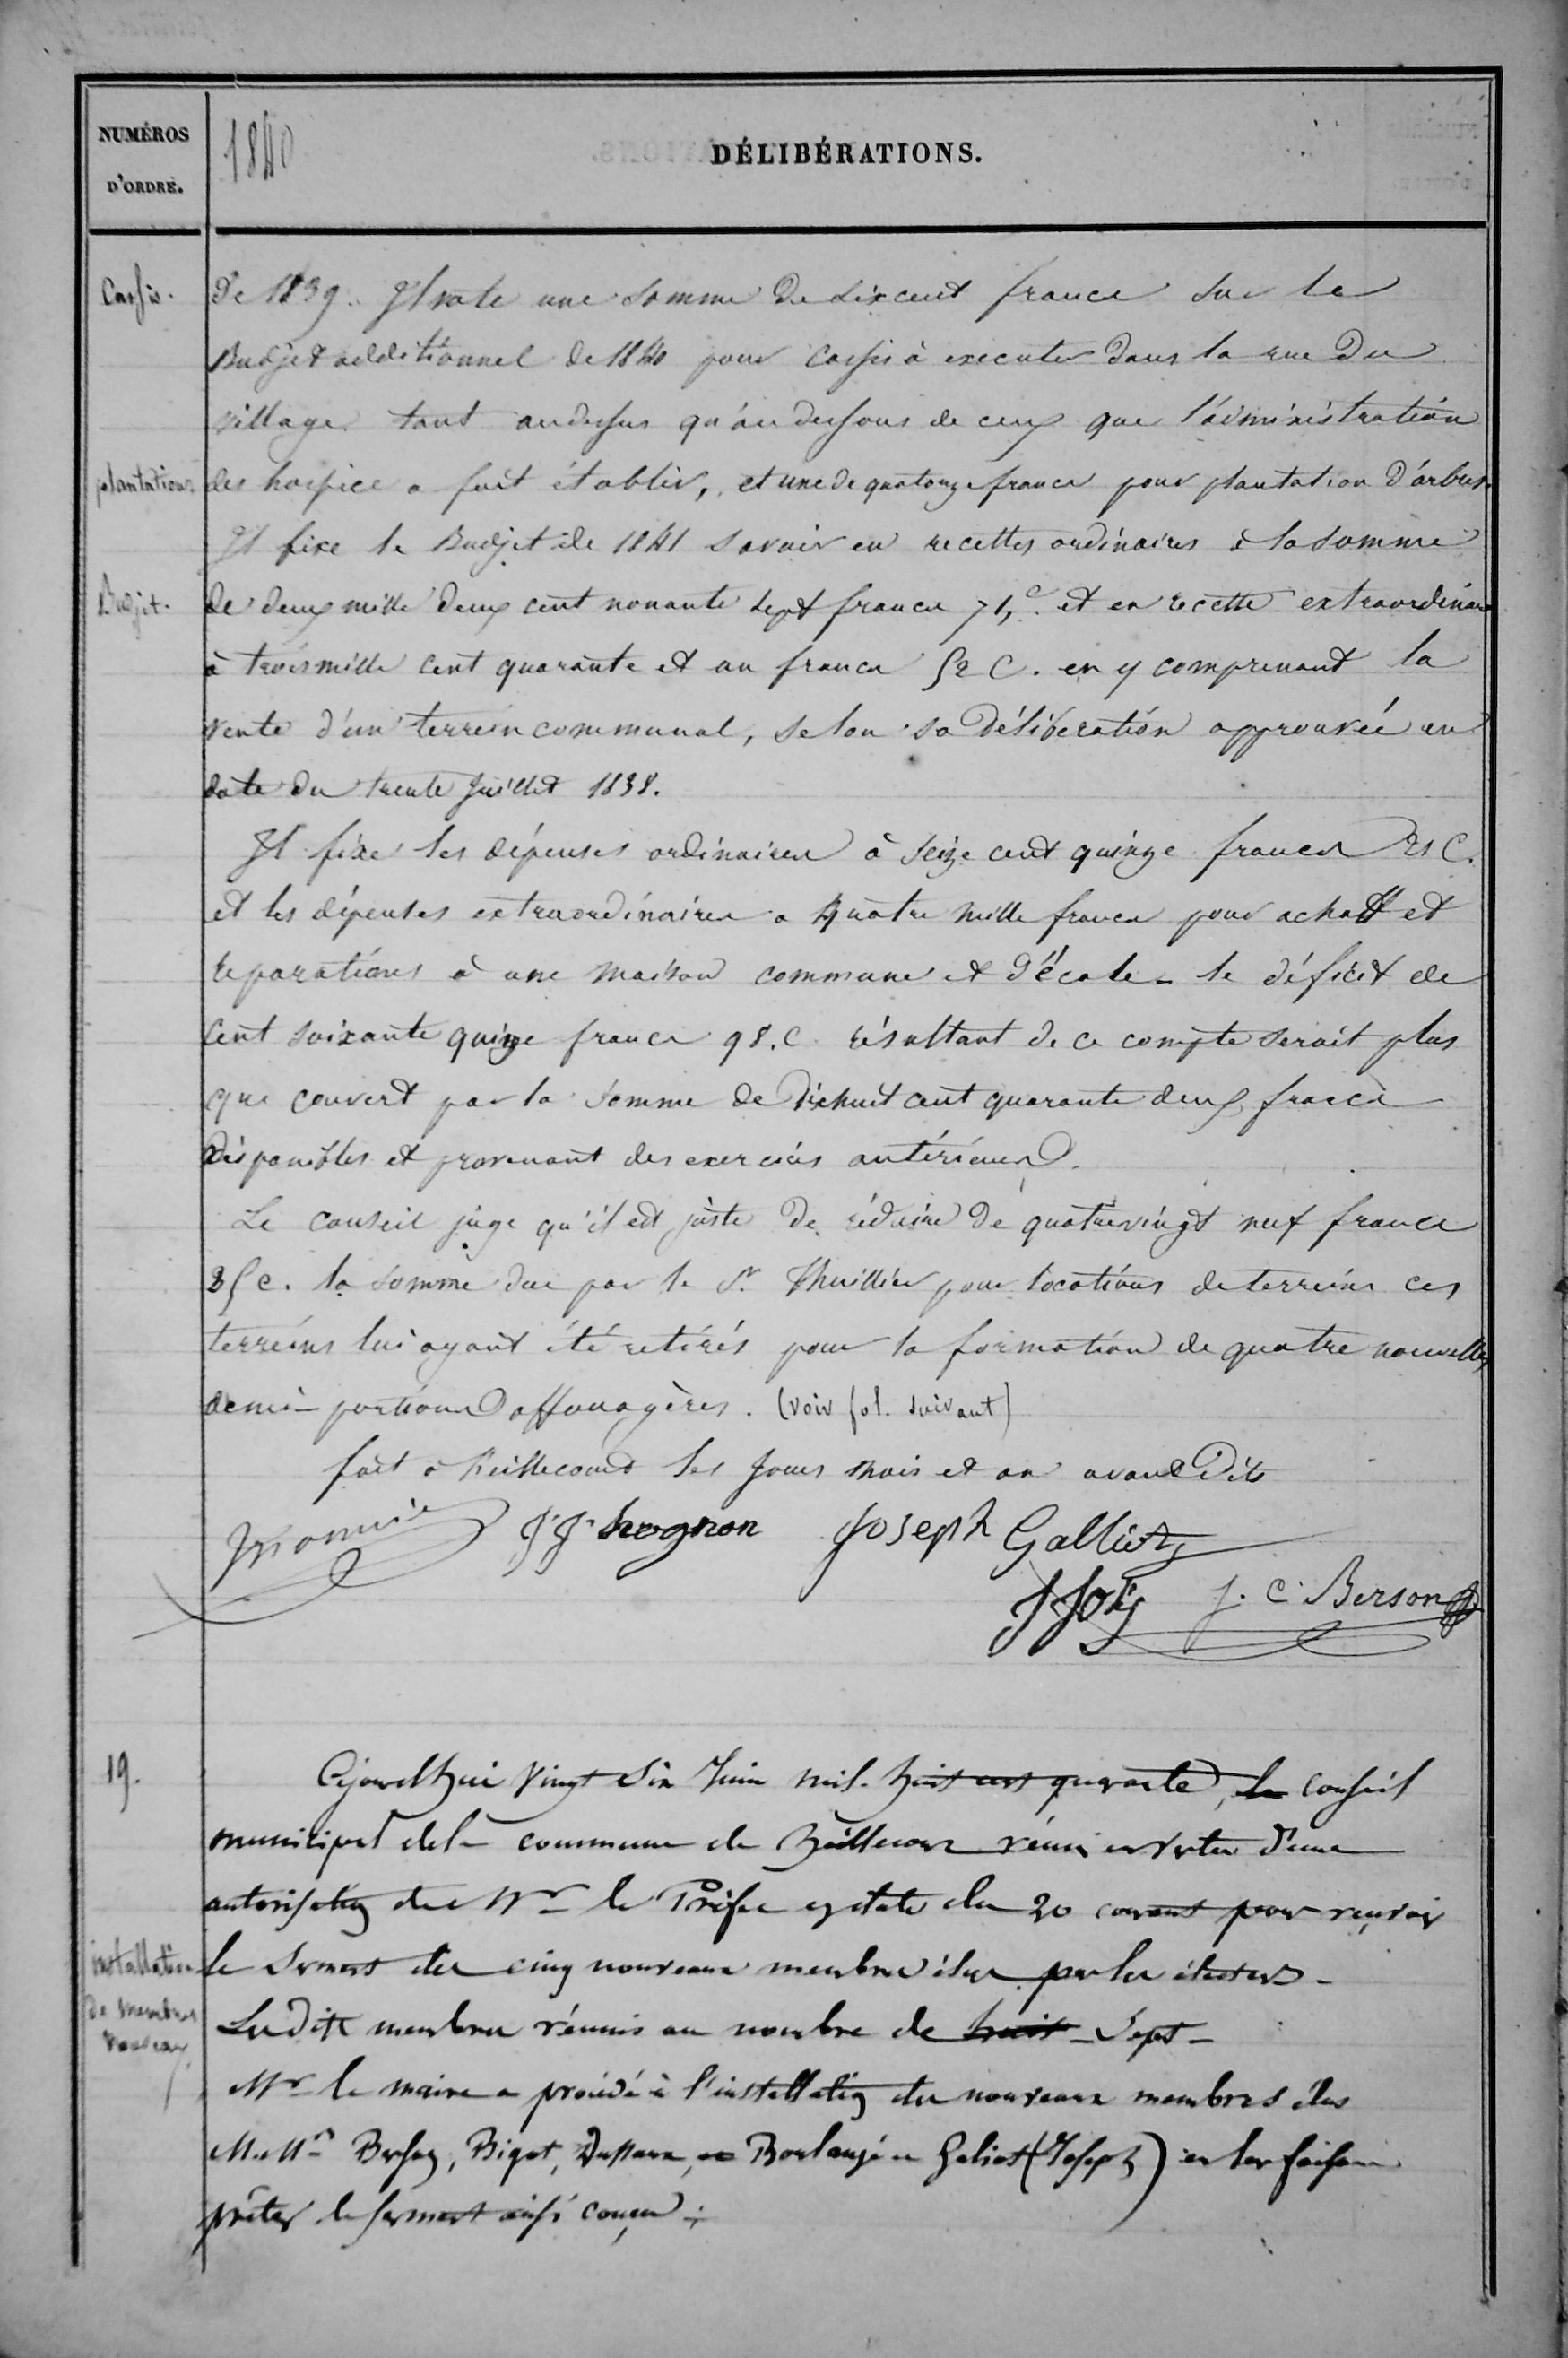 NUMÉROS
D'ORDRE.
1840
DÉLIBÉRATIONS.
Cassis.
De 1839. Il vote une somme de six cent francs sur le
Budjet additionnel de 1840 pour cassis à executer dans la rue du
village tant audessus qu'au dessous de ceux que l'administration
plantations
des hospice a fait établir, et une de quatorze francs pour plantation d'arbres.
Il fixe le Budjet de 1841 savoir en recettes ordinaires à la somme
Budjet.
de deux mille deux cent nonante sept francs 71,c. et en recette extraordinaire
à trois mille cent quarante et un francs 52 C. en y comprenant la
vente d'un terrein communal, selon sa délibération approuvée en
date du trente Juillet 1838.
Il fixe les dépenses ordinaires à seize cent quinze francs 21 C.
et les dépenses extraordinaires a quatre mille francs pour achatt et
reparations à une maison commune et d'école - le déficit de
cent soixante quinze francs 98.C résultant de ce compte serait plus
que couvert par la somme de dix huit cent quarante deux francs
disponibles et provenant des exercices antérieurs.
Le conseil juge qu'il est juste de réduire de quatrevingt neuf francs
85 c. la somme due par le Sr. Thuillier pour locations de terreins ces
terreins lui ayant été retirés pour la formation de quatre nouvelles
demi-portions affouagères. (voir fol. suivant)
fait à heillecourt les jours mois et an avant dits
J. J. hognon Joseph Galliot
J Joly J. C. Berson
19.
Cejourdhui vingt six Juin mil huit cent quarante, le conseil
municipal de la commune de heillecourt réuni en vertu d'une
autorisation de Mr le Préfet en date du 20 courant pour recevoir
installation
le serment des cinq nouveaux membres élus par les électeurs -
de membres
nouveaux
Lesdits membres réunis au nombre de huit - sept -
Mr le maire a procédé à l'installation des nouveaux membres élus
M.Mrs Berson, Bigot, et Boulangé et Galiot (Joseph) en leur faisant
prêter le serment ainsi conçu :